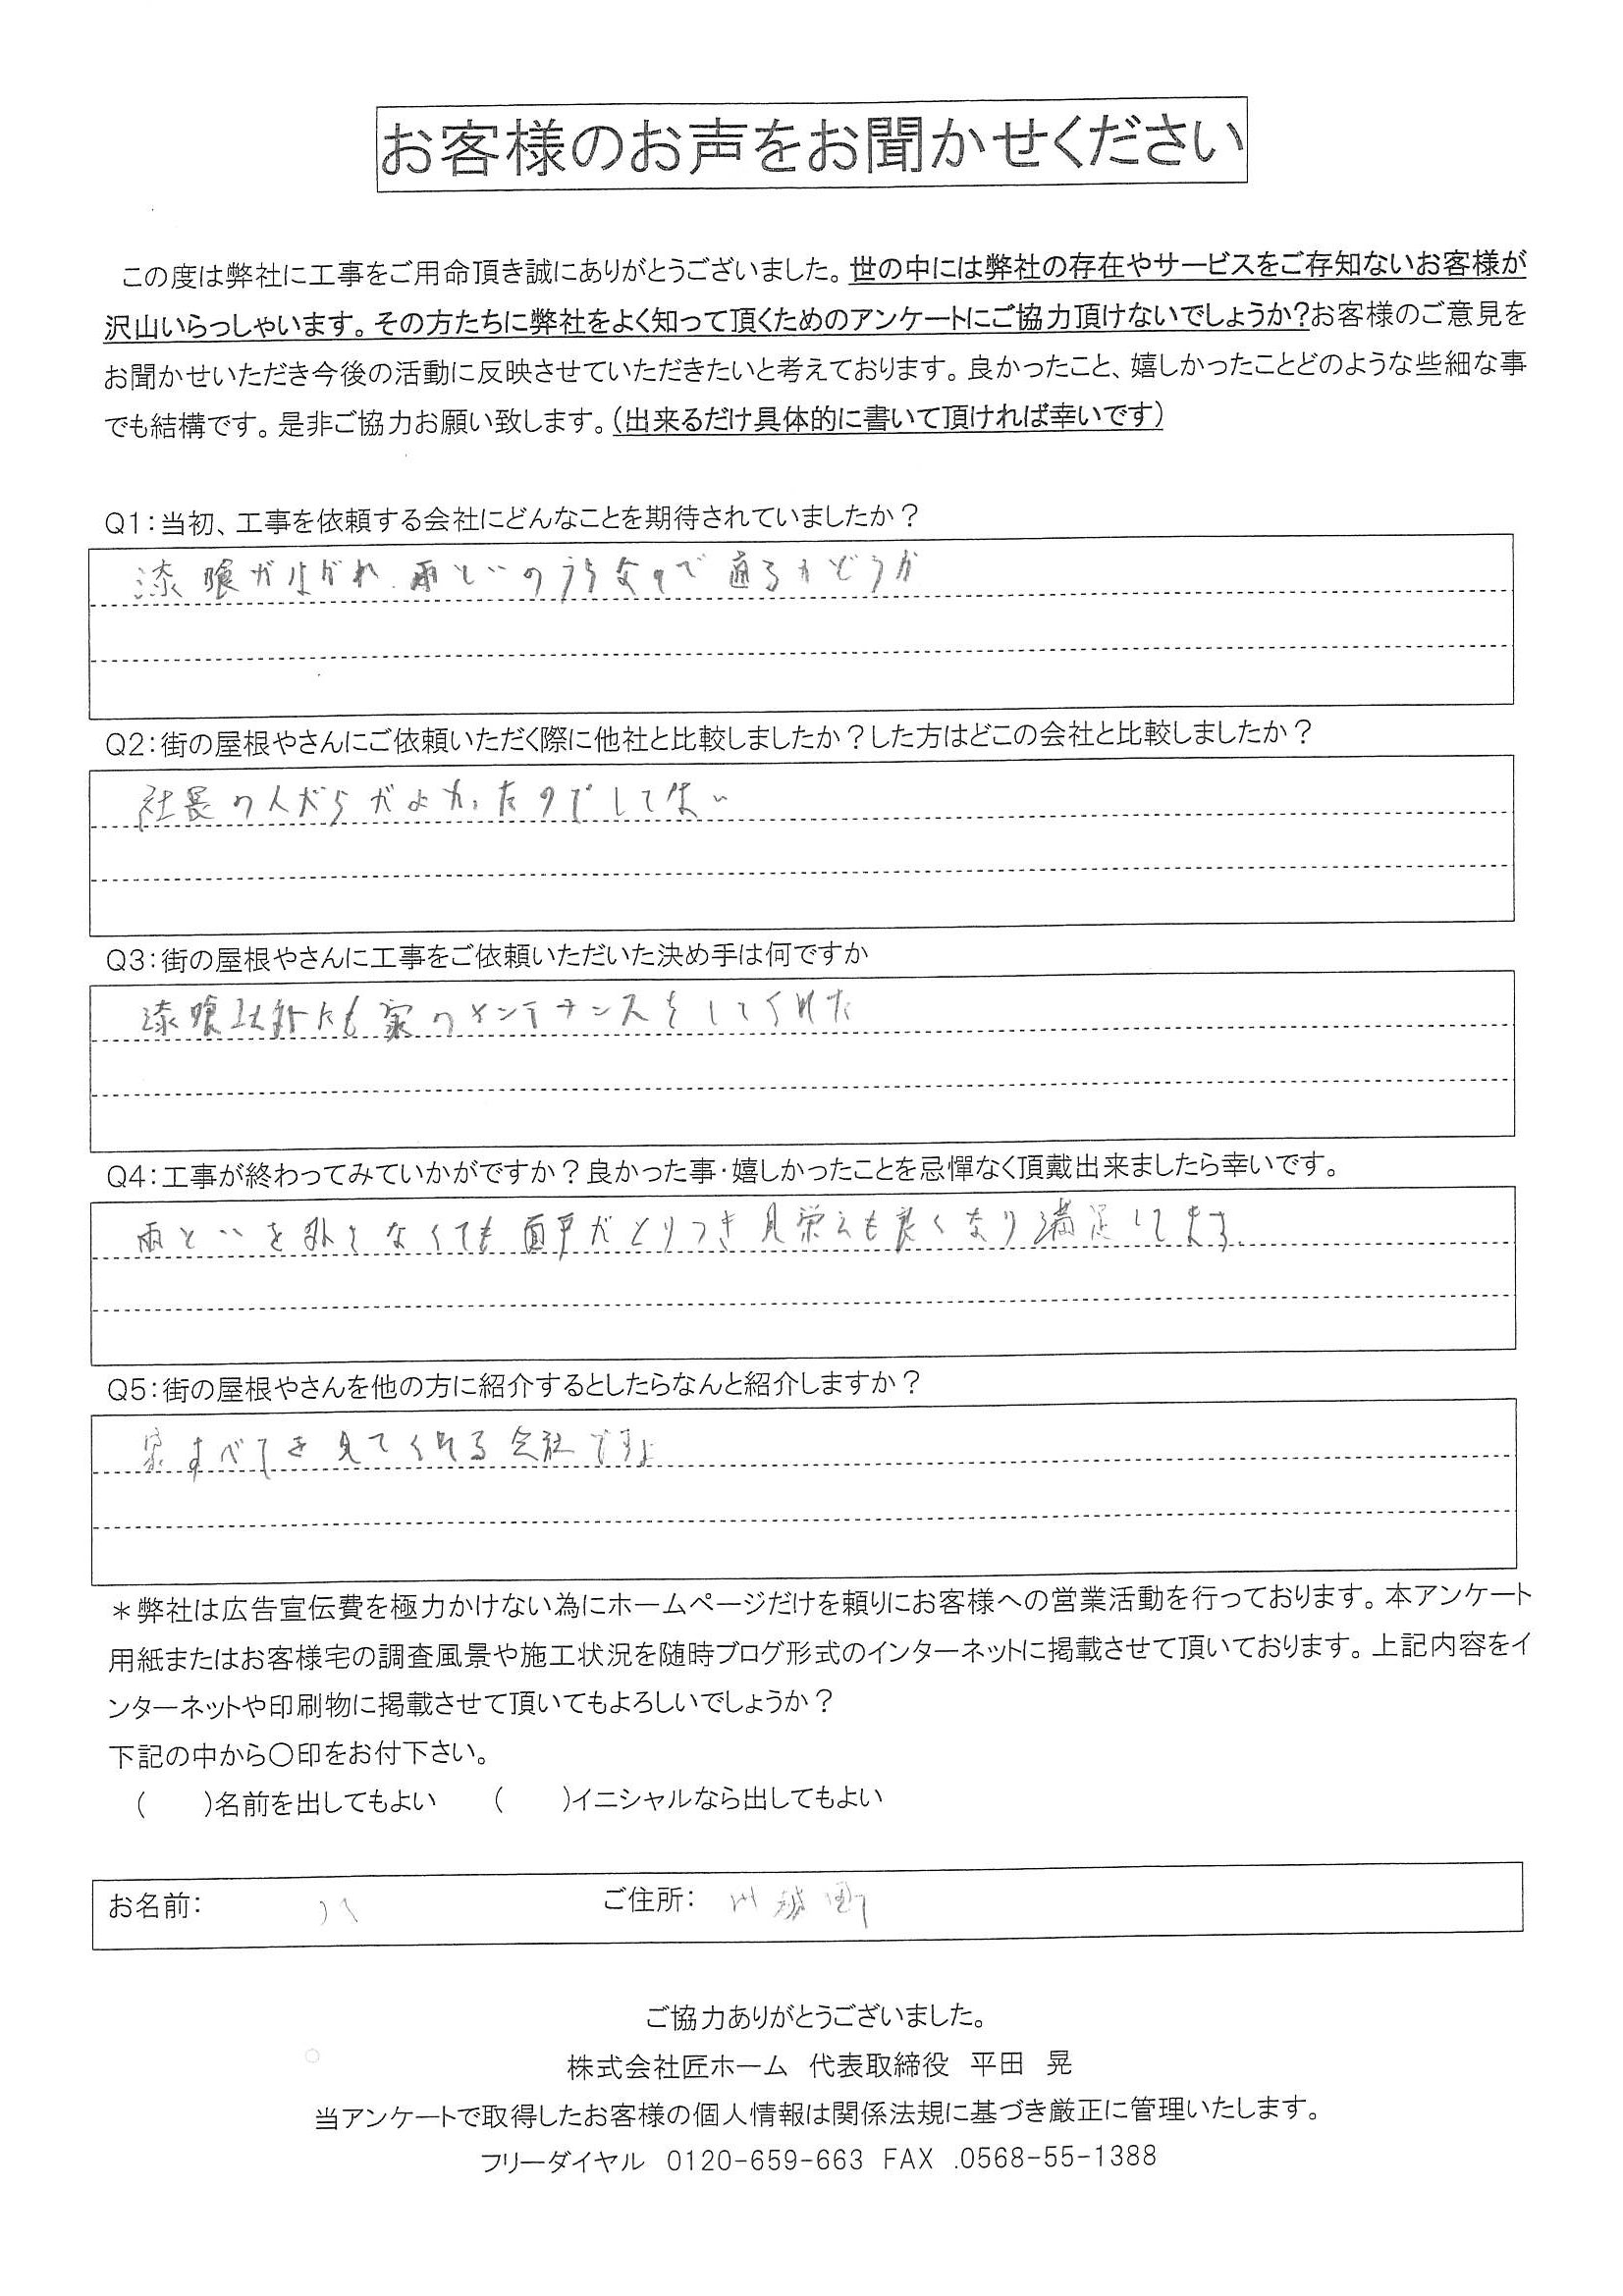 お客様のお声をお聞かせください
この度は弊社に工事をご用命頂き誠にありがとうございました。世の中には弊社の存在やサービスをご存知ないお客様が
沢山いらっしゃいます。その方たちに弊社をよく知って頂くためのアンケートにご協力頂けないでしょうか?お客様のご意見を
お聞かせいただき今後の活動に反映させていただきたいと考えております。良かったこと、嬉しかったことどのような些細な事
でも結構です。是非ご協力お願い致します。(出来るだけ具体的に書いて頂ければ幸いです)
Q1:当初、工事を依頼する会社にどんなことを期待されていましたか?
漆喰がはがれ、雨といのうらなので直るかどうか
Q2:街の屋根やさんにご依頼いただく際に他社と比較しましたか?した方はどこの会社と比較しましたか?
社長の人がらがよかったのでしてない
Q3:街の屋根やさんに工事をご依頼いただいた決め手は何ですか
漆喰以外にも家のメンテナンスをしてくれた
Q4:工事が終わってみていかがですか?良かった事・嬉しかったことを忌憚なく頂戴出来ましたら幸いです。
雨といを外さなくても面戸がとりつき見栄えも良くなり満足してます
Q5:街の屋根やさんを他の方に紹介するとしたらなんと紹介しますか?
家すべてを見てくれる会社ですよ
*弊社は広告宣伝費を極力かけない為にホームページだけを頼りにお客様への営業活動を行っております。本アンケート
用紙またはお客様宅の調査風景や施工状況を随時ブログ形式のインターネットに掲載させて頂いております。上記内容をイ
ンターネットや印刷物に掲載させて頂いてもよろしいでしょうか?
下記の中から〇印をお付下さい。
(　　)名前を出してもよい　　(　　)イニシャルなら出してもよい
お名前:　　ご住所:
ご協力ありがとうございました。
株式会社匠ホーム　代表取締役　平田　晃
当アンケートで取得したお客様の個人情報は関係法規に基づき厳正に管理いたします。
フリーダイヤル　0120-659-663 FAX .0568-55-1388